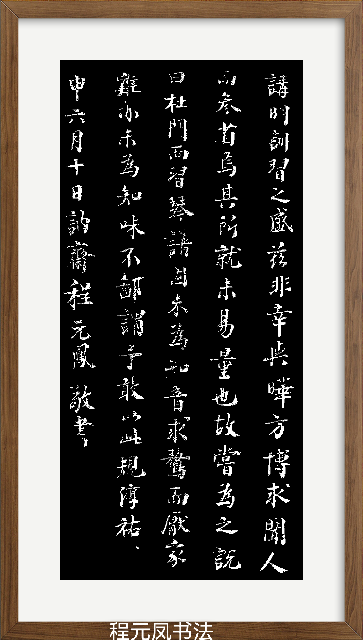 講明訓習之盛茲非幸與曄方博求聞人
而参省焉其所就未易量也故嘗為之説
曰杜門而習琴譜自未為知音求鶩而厭家
雞亦未為知味不鄙謂予敢以此規淳祐
申六月十日訥齋程元鳳敬書
程元凤书法